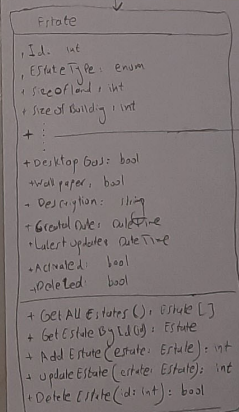 Estate
, Id: int
, EstateType: enum
+ SizeOfLand, int
+ SizeOfBuilding, int
+ :
+ Desktop Gas: bool
+ Wallpaper, bool
+ Description: string
+ Created Date: DateTime
+ Latest Update: DateTime
+ Activated: bool
+ Deleted: bool
+ GetAllEstates(), Estate []
+ GetEstateById(id): Estate
+ AddEstate(estate: Estate): int
+ UpdateEstate(estate: Estate): int
+ DeleteEstate(id: int): bool